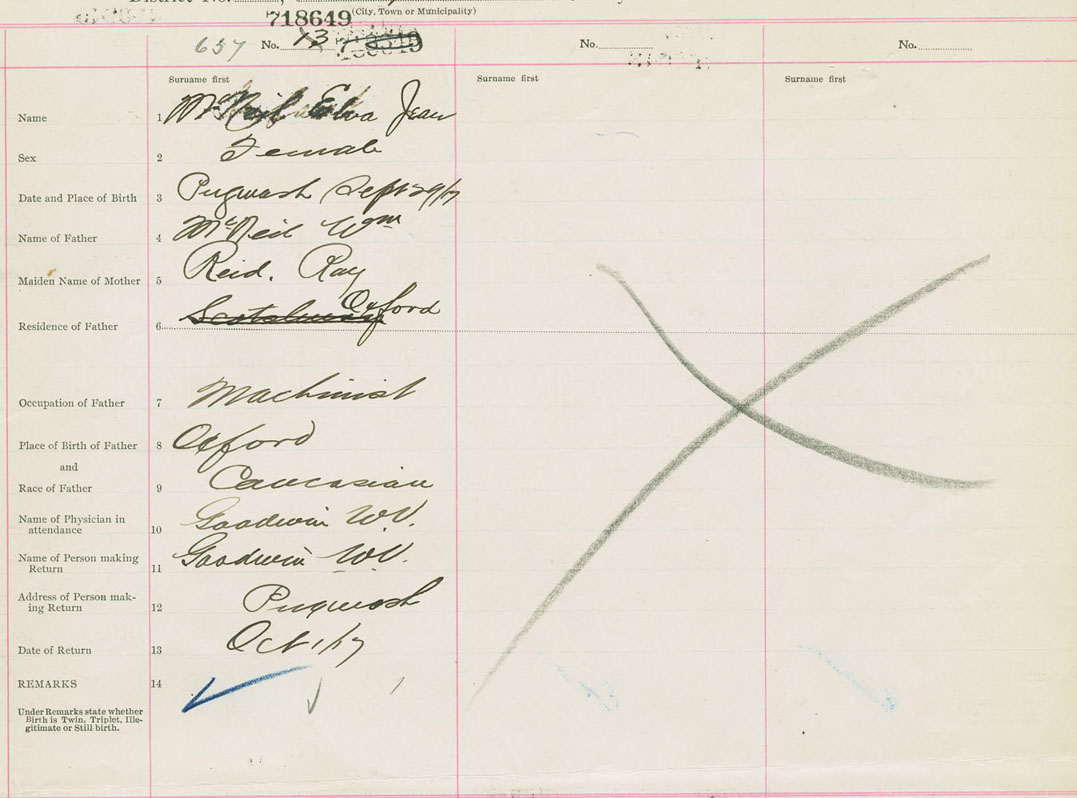 District No.
(City, Town or Municipality)
718649
657 No. 13
No.
No.
Surname first
Surname first
Surname first
Name 1 McNeil Elva Jean
Sex 2 Female
Date and Place of Birth 3 Pugwash Sept 29/17
Name of Father 4 McNeil Wm
Maiden Name of Mother 5 Reid. Ray
Residence of Father 6 Oxford
Occupation of Father 7 Machinist
Place of Birth of Father 8 Oxford
and
Race of Father 9 Caucasian
Name of Physician in
attendance 10 Goodwin W.V.
Name of Person making
Return 11 Goodwin W.V.
Address of Person mak-
ing Return 12 Pugwash
Date of Return 13 Oct 1/17
REMARKS 14
Under Remarks state whether
Birth is Twin, Triplet, Ille-
gitimate or Still birth.